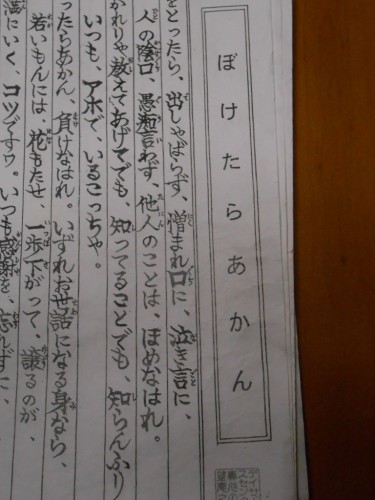 ぼけたらあかん
をとったら、出しゃばらず、憎まれ口に、泣き言に、
人の陰口、愚痴言わず、他人のことは、ほめなはれ。
かれりゃ教えてあげてでも、知ってることでも、知らんふり
いつも、アホで、いるこっちゃ。
ったらあかん、負けなはれ。いずれお世話になる身なら、
若いもんには、花もたせ、一歩下がって、譲るのが、
満にいく、コツですゥ。いつも感謝を、忘れずに、